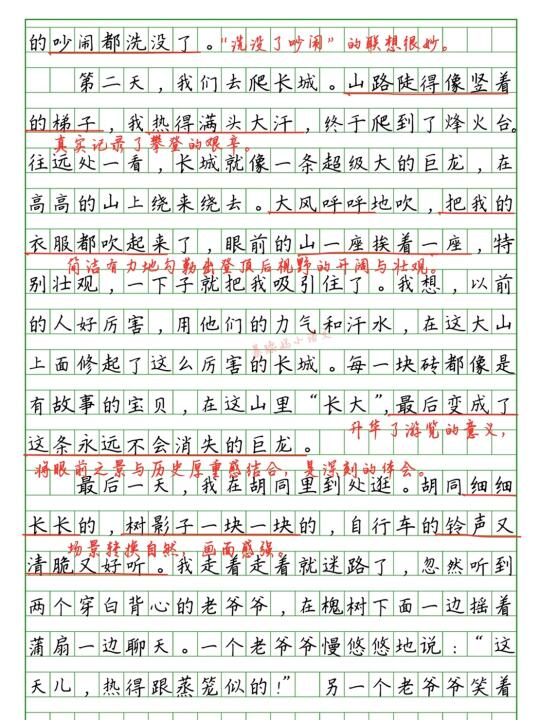 的吵闹都洗没了。"洗没了吵闹"的联想很妙。
第二天，我们去爬长城。山路陡得像竖着
的梯子，我热得满头大汗，终于爬到了烽火台。
真实记录了攀登的艰辛。
往远处一看，长城就像一条超级大的巨龙，在
高高的山上绕来绕去。大风呼呼地吹，把我的
衣服都吹起来了，眼前的山一座挨着一座，特
简洁有力地勾勒出登顶后视野的开阔与壮观。
别壮观，一下子就把我吸引住了。我想，以前
的人好厉害，用他们的力气和汗水，在这大山
上面修起了这么厉害的长城。每一块砖都像是
有故事的宝贝，在这山里"长大"，最后变成了
升华了游览的意义，
这条永远不会消失的巨龙。
将眼前之景与历史厚重感结合，是深刻的体会。
最后一天，我在胡同里到处逛。胡同细细
长长的，树影子一块一块的，自行车的铃声又
场景转换自然，画面感强。
清脆又好听。我走着走着就迷路了，忽然听到
两个穿白背心的老爷爷，在槐树下面一边摇着
蒲扇一边聊天。一个老爷爷慢悠悠地说："这
天儿，热得跟蒸笼似的！"另一个老爷爷笑着